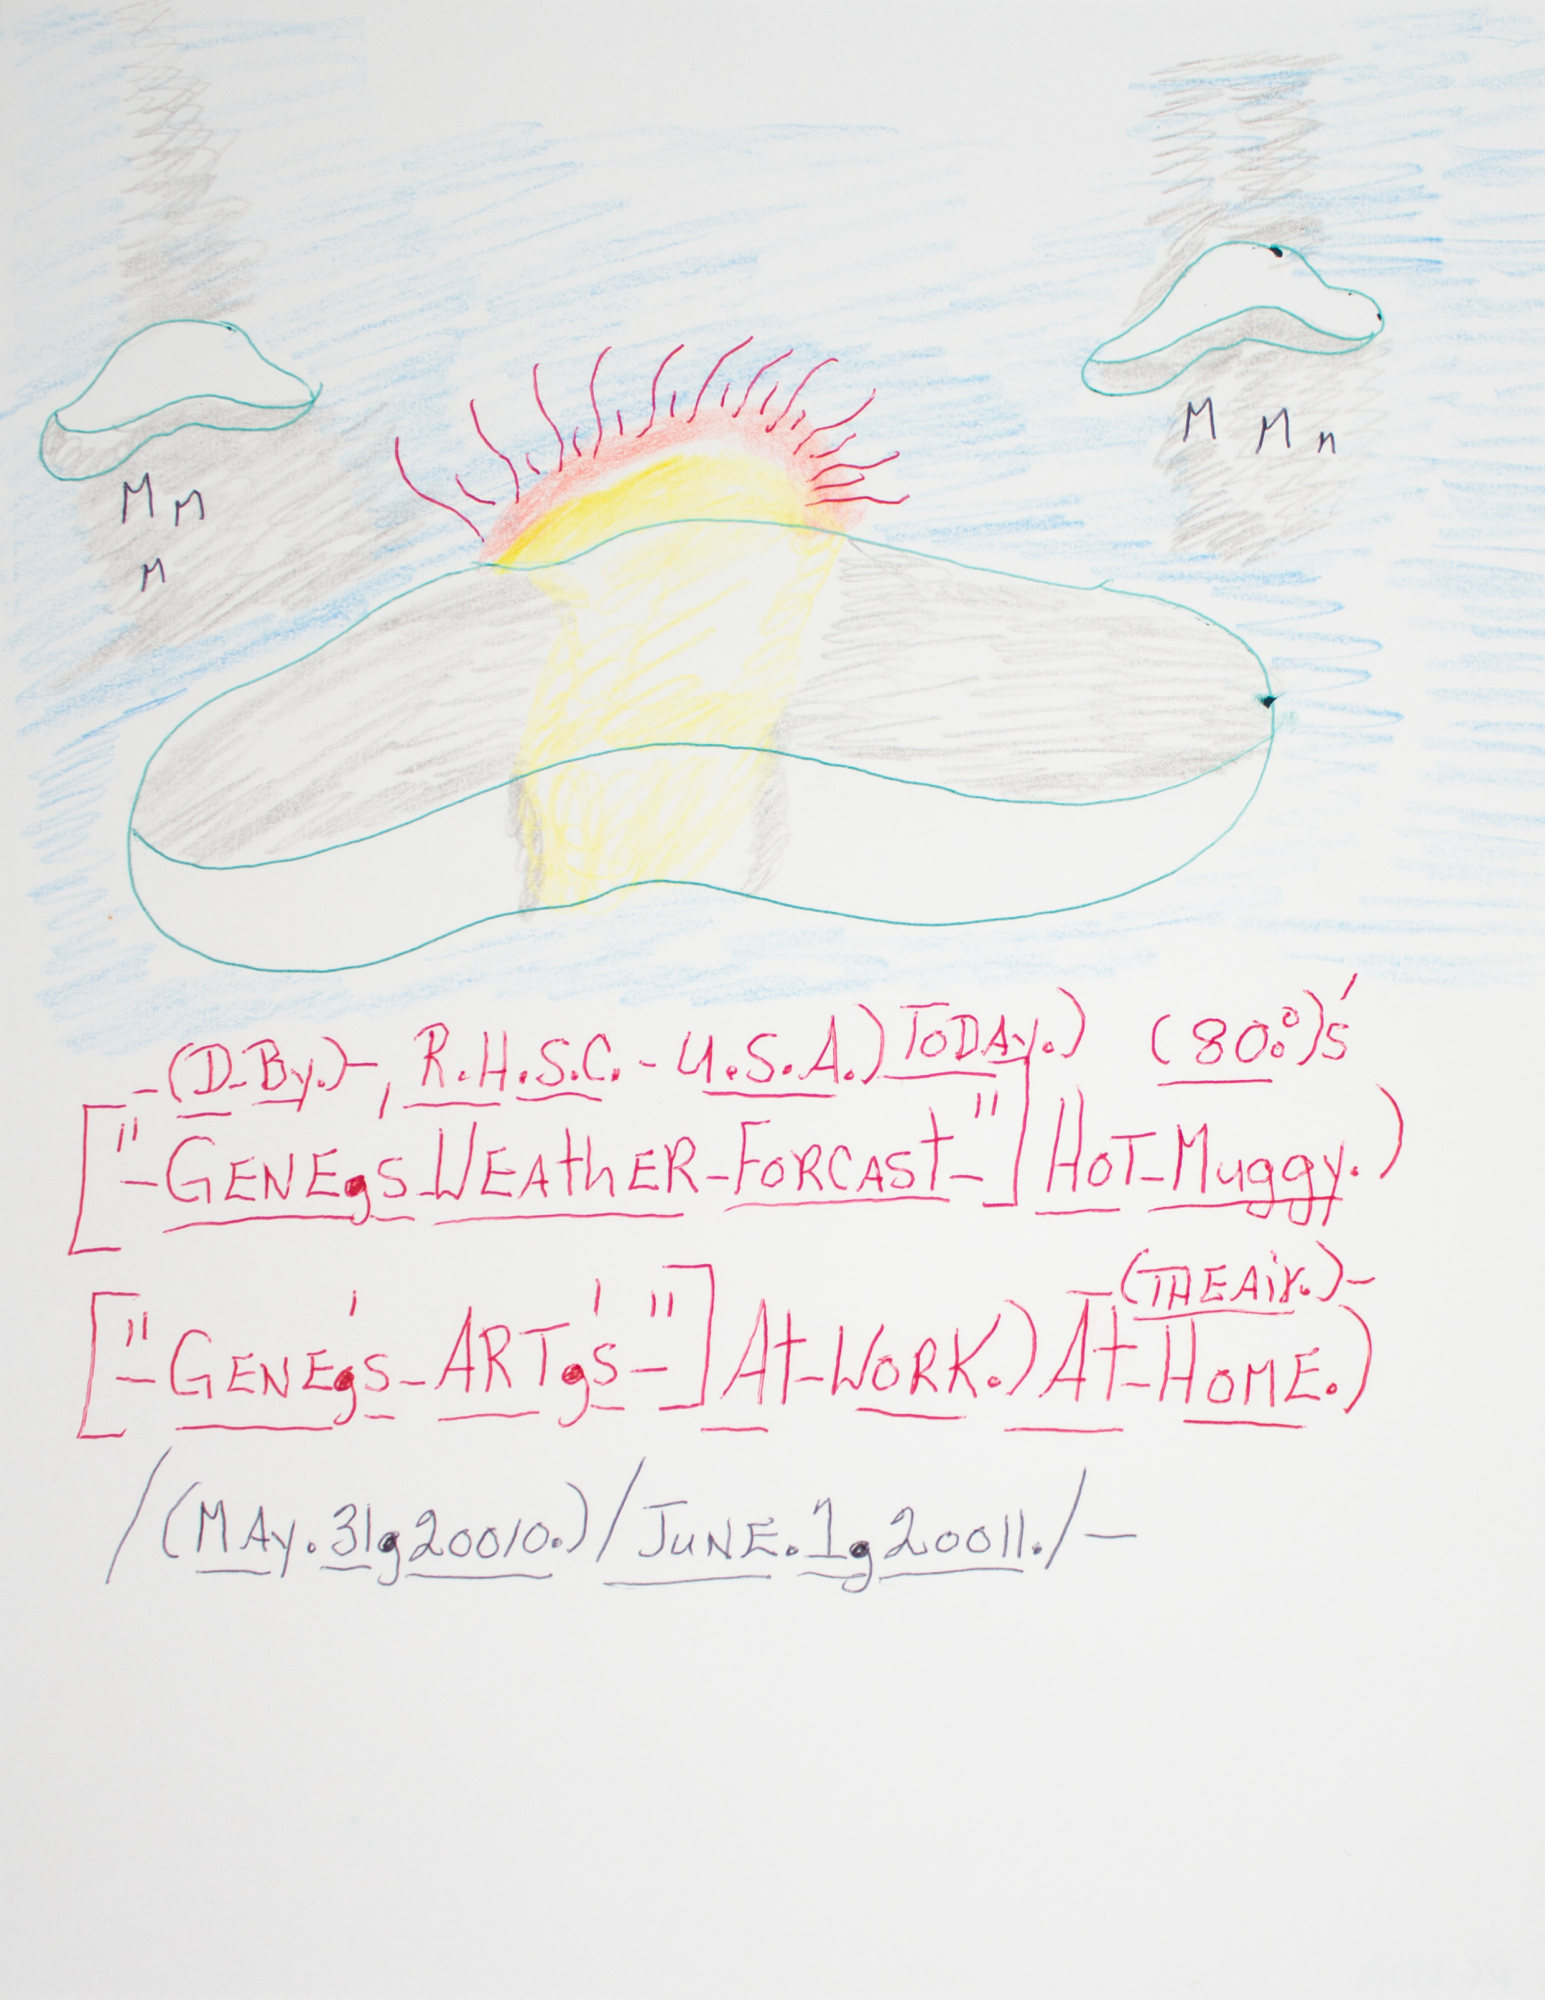 M M
M
M M n
-(D-By.)-, R.H.S.C.-U.S.A.) TODAY.) (80.°)'s
["-GENEgs-WEAthER-FORCASt-"] HOT-Muggy.)
(THEAir.)-
["-GENEg's-ARTg's-"] At-WORK.) At-HOME.)
/(MAy.31g20010.)/JUNE.1g20011./-